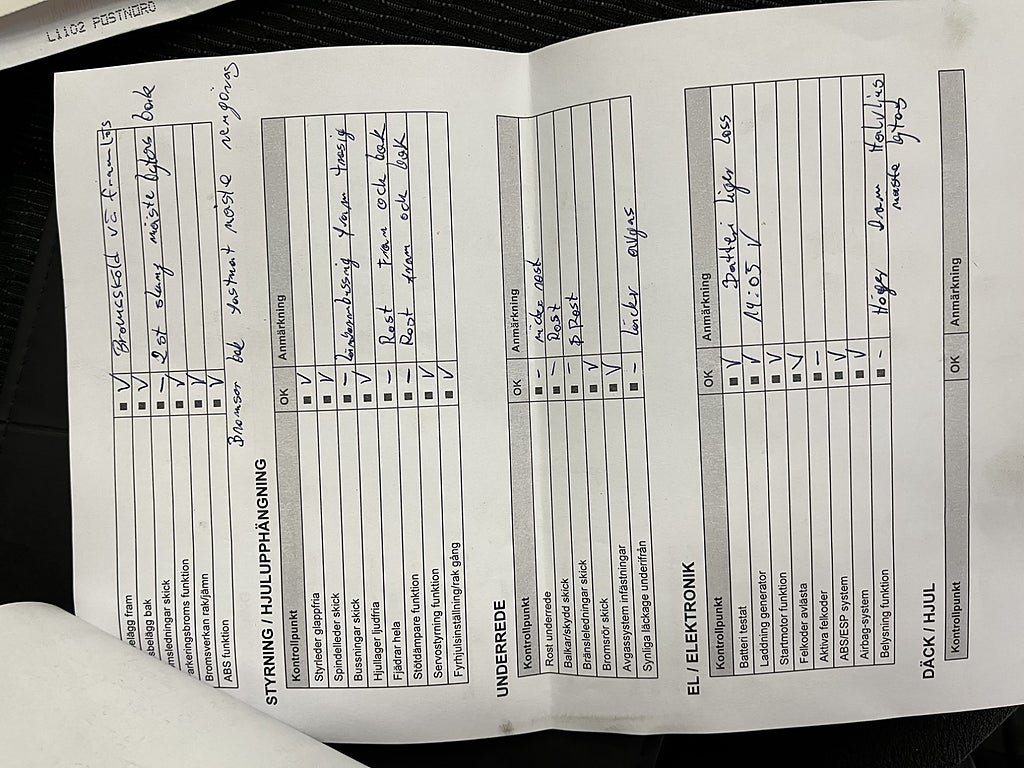 L1102 POSTNORD
elägg fram ✓ Bromssköld vä fram lös
sbelägg bak ✓
msledningar skick – 2 st slang måste bytas bak
arkeringsbroms funktion ✓
Bromsverkan rak/jämn ✓
ABS funktion ✓
Bromsar bak fastnat måste rengöras
STYRNING / HJULUPPHÄNGNING
Kontrollpunkt OK Anmärkning
Styrleder glappfria ✓
Spindelleder skick ✓
Bussningar skick – fram trasig
Hjullager ljudfria ✓
Fjädrar hela – Rost fram och bak
Stötdämpare funktion – Rost fram och bak
Servostyrning funktion ✓
Fyrhjulsinställning/rak gång ✓
UNDERREDE
Kontrollpunkt OK Anmärkning
Rost underrede – rost
Balkar/skydd skick – Rost
Bränsleledningar skick – Rost
Bromsrör skick ✓
Avgassystem infästningar ✓
Synliga läckage underifrån – läcker avgas
EL / ELEKTRONIK
Kontrollpunkt OK Anmärkning
Batteri testat ✓ Batteri ligger loss
Laddning generator ✓ 14:05 V
Startmotor funktion ✓
Felkoder avlästa ✓
Aktiva felkoder –
ABS/ESP system ✓
Airbag-system ✓
Belysning funktion – Höger fram Halvljus
måste bytas
DÄCK / HJUL
Kontrollpunkt OK Anmärkning